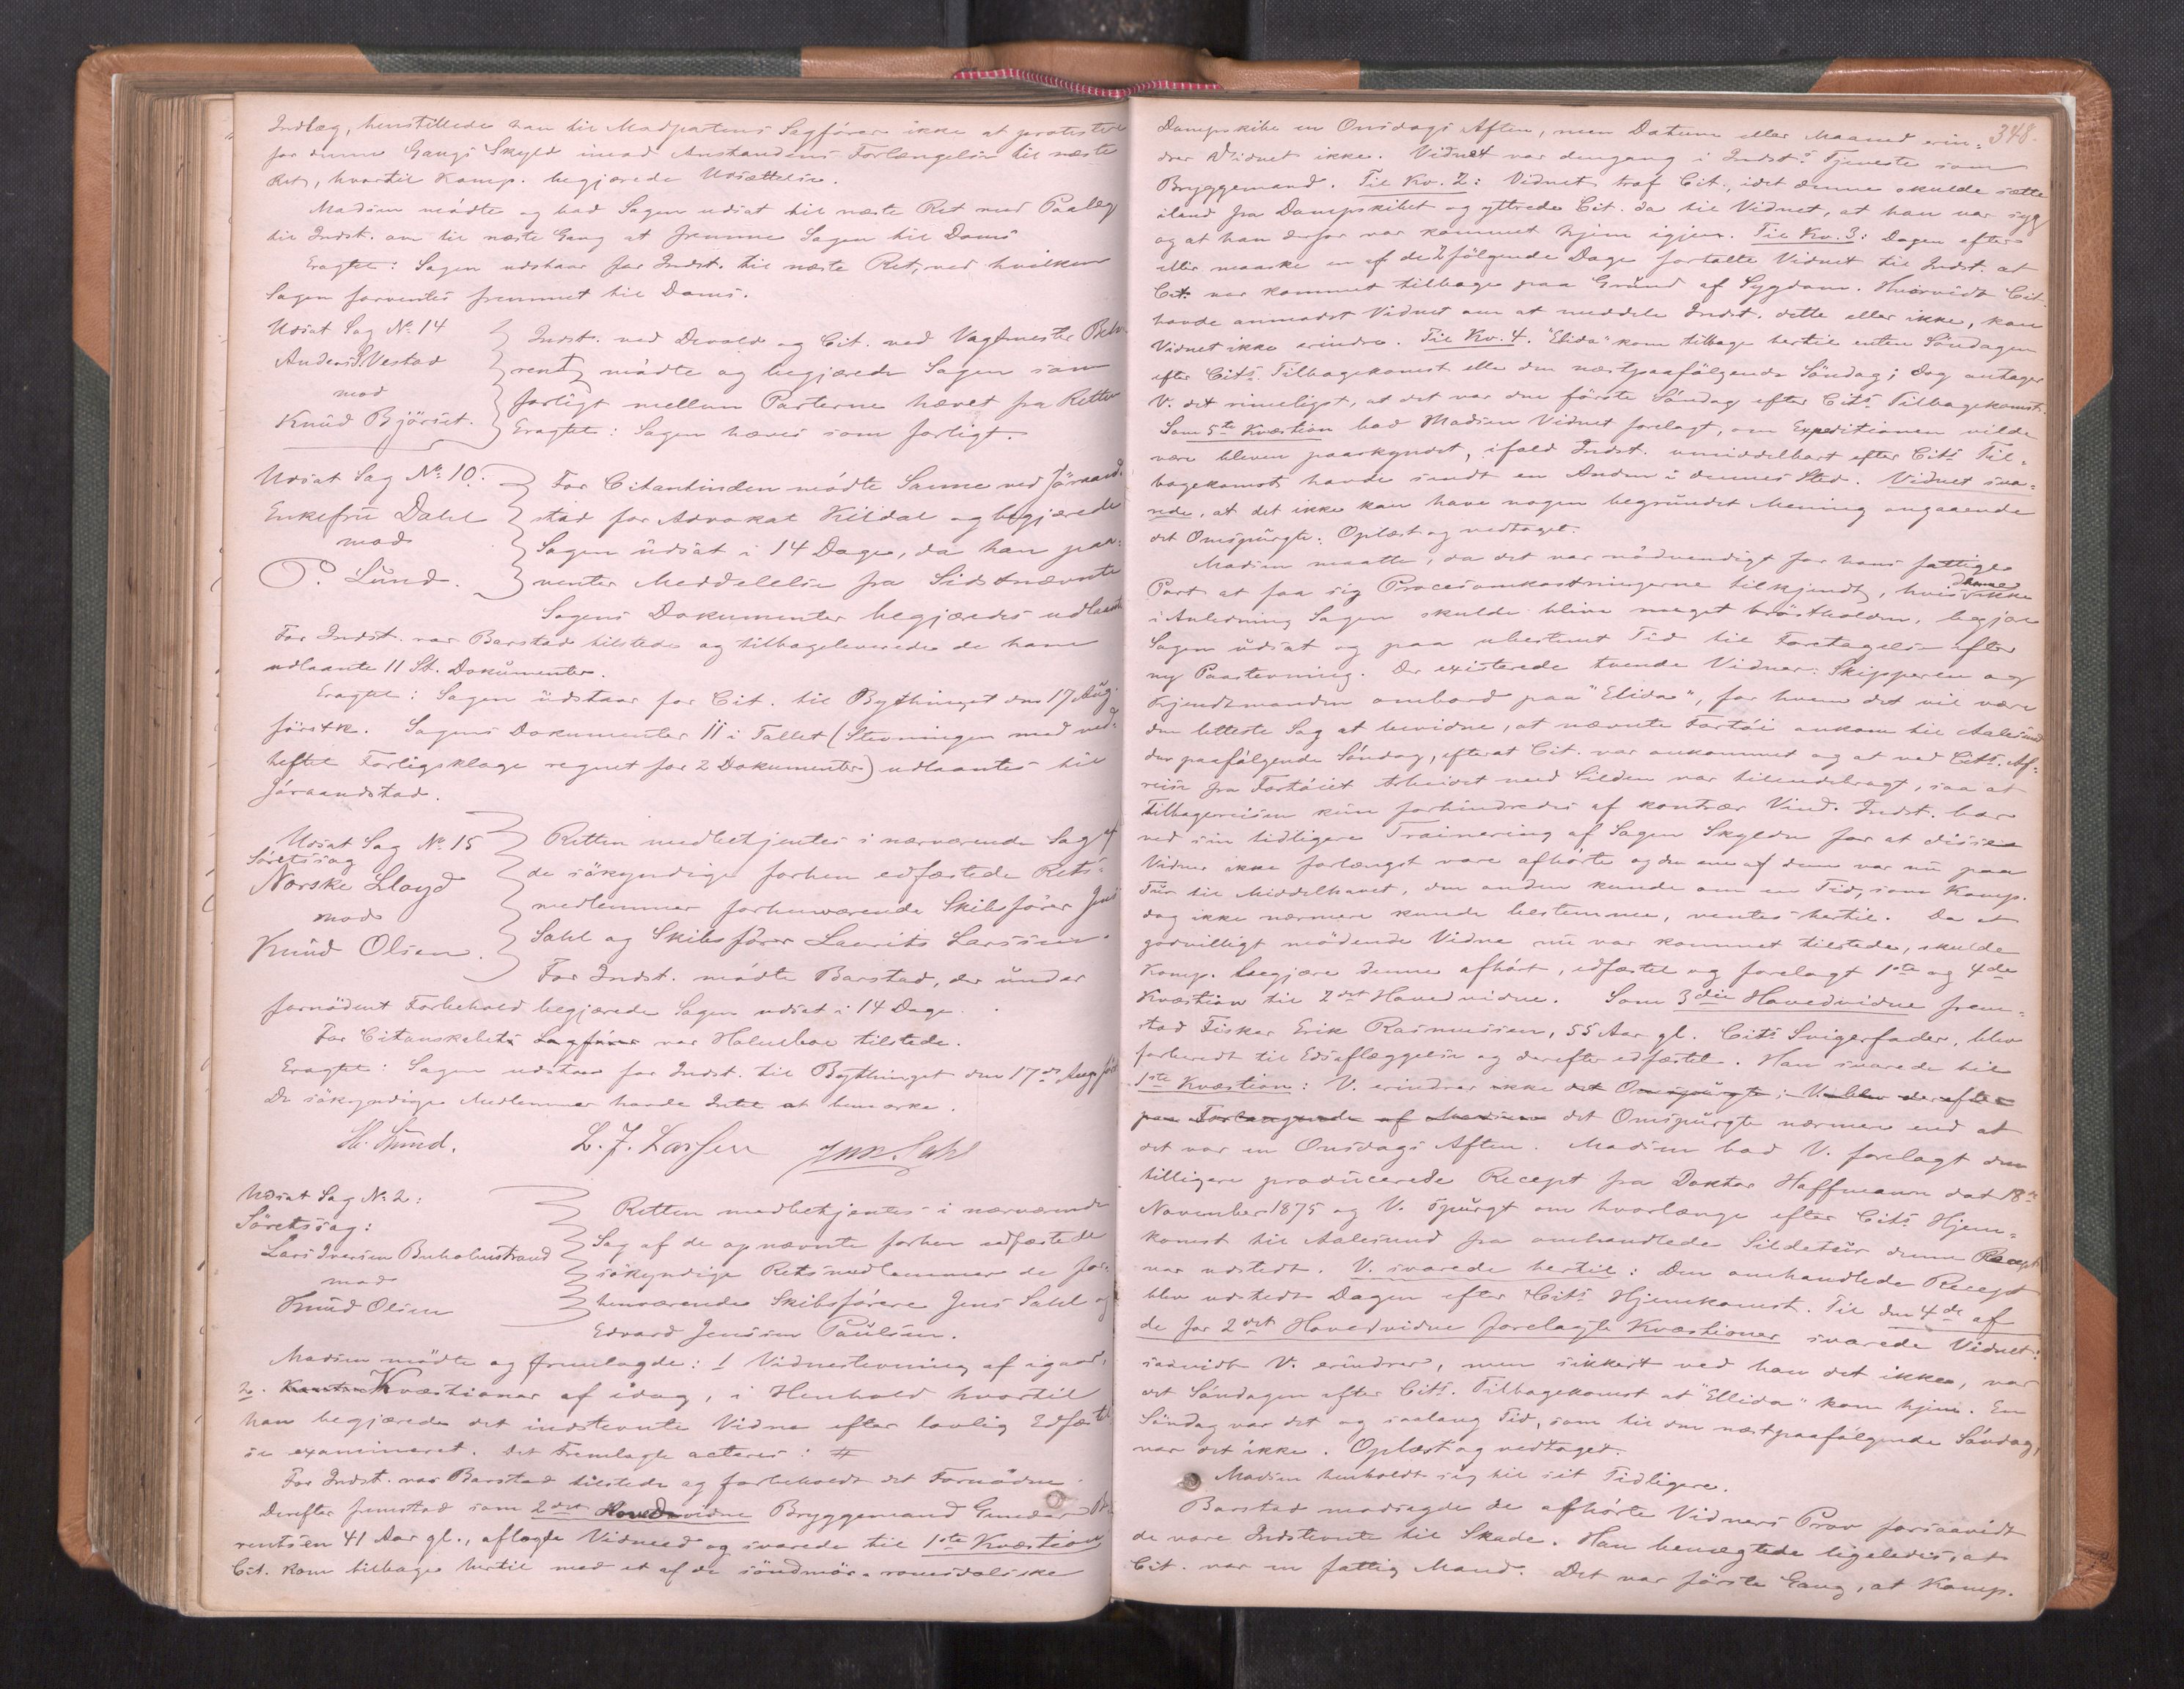 Indlæg, henstillede han til Madpartens Sagfører ikke at protestere
for denne Gangs Skyld imod Anstandens Forlængelse til næste
Ret, hvortil Komp. begjærede Udsættelse.
Madsen mødte og bad Sagen udsat til næste Ret med Paalæg
til Indst. om til næste Gang at fremme Sagen til Doms
Eragtet: Sagen udstaar for Indst. til næste Ret, ved hvilken
Sagen forventes fremmet til Doms.
Udsat Sag No. 14
Anders Vestad
mod
Knud Bjørset.
Indst. ved Devold og Cit. ved Vagtmester Beh-
rentz mødte og begjærede Sagen som
forligt mellem Parterne hævet fra Retten
Eragtet: Sagen hæves som forligt.
Udsat Sag No. 10.
Enkefru Dahl
mod
P. Lund.
For Citantinden mødte Sanne ved Jøraand-
stad for Advokat Kildal og begjærede
Sagen udsat i 14 Dage, da han paa-
venter Meddelelse fra Sidstnævnte
Sagens Dokumenter begjæredes udlaante
For Indst. var Barstad tilstede og tilbageleverede de ham
udlaante 11 St. Dokumenter.
Eragtet: Sagen udstaar for Cit. til Bythinget den 17 Aug.
førstk. Sagens Dokumenter 11 i Tallet (Stevningen med ved-
heftet Forligsklage regnet for 2 Dokumenter) udlaantes til
Jøraandstad.
Udsat Sag No. 15
Søretssag
Norske Lloyd
mod
Knud Olsen.
Retten medbetjentes i nærværende Sag af
de søkyndige forhen edfæstede Rets-
medlemmer forhenværende Skibsfører Jens
Dahl og Skibsfører Laurits Larssen.
For Indst. mødte Barstad, der under
fornødent Forbehold begjærede Sagen udsat i 14 Dage.
For Citanskabets Sagfører var Holmboe tilstede.
Eragtet: Sagen udstaar for Indst. til Bythinget den 17de Aug. først
De søkyndige Medlemmer havde Intet at bemærke.
L. J. Larssen
Udsat Sag No. 2:
Søretssag:
Lars Iversen Buholmstrand
mod
Knud Olsen
Retten medbetjentes i nærværende
Sag af de opnævnte forhen edfæstede
søkyndige Retsmedlemmer de for-
henværende Skibsførere Jens Dahl og
Edvard Jenssen Paulsen.
Madsen mødte og fremlagde: 1 Vidnestevning af igaar,
2. Kvæstioner af idag, i Henhold hvortil
han begjærede det indstevnte Vidne efter lovlig Edfæstel-
se examineret. Det Fremlagte acteres: #
For Indst. var Barstad tilstede og forbeholdt det Fornødne.
Derefter fremstod som 2det Hovedvidne Bryggemand Gunder
rentsen 41 Aar gl., aflagde Vidneed og svarede til 1ste Kvæstion
Cit. kom tilbage hertil med et af de søndmør-romsdalske
348.
Dampskibe en Onsdags Aften, men Datum eller Maaned erin-
drer Vidnet ikke. Vidnet var dengang i Indsts Tjeneste som
Bryggemand. Til Kv. 2: Vidnet traf Cit., idet denne skulde sætte
iland fra Dampskibet og yttrede Cit. da til Vidnet, at han var syg
og at han derfor var kommet hjem igjen. Til Kv. 3: Dagen efter
eller maaske en af de 2 følgende Dage fortalte Vidnet til Indst. at
Cit. var kommet tilbage paa Grund af Sygdom. Hvorvidt Cit.
havde anmodet Vidnet om at meddele Indst. dette eller ikke, kan
Vidnet ikke erindre. Til Kv. 4. "Elida" kom tilbage hertil enten Søndagen
efter Cits. Tilbagekomst eller den næstpaafølgende Søndag; dog antager
V. det rimeligst, at det var den første Søndag efter Cits. Tilbagekomst.
Som 5te Kvæstion bad Madsen Vidnet forelagt, om Expeditionen vilde
være bleven paaskyndet, ifald Indst. umiddelbart efter Cits Til-
bagekomst havde sendt en Anden i dennes Sted. Vidnet sva-
rede, at det ikke kan have nogen begrundet Mening angaaende
det Omspurgte. Oplæst og vedtaget.
Madsen maatte, da det var nødvendigt for hans fattige
Part at faa sig Procesomkostningerne tilkjendt, hvis ikke denne
i Anledning Sagen skulde blive meget brøstholden, begjære
Sagen udsat og paa ubestemt Tid til Foretagelse efter
ny Paastevning. Der existerede tvende Vidner: Skipperen og
Kjendtmanden ombord paa "Elida", for hvem det vil være
den letteste Sag at bevidne, at nævnte Fartøi ankom til Aalesund
den paafølgende Søndag, efterat Cit. var ankommet og at ved Cits. Af-
reise fra Fartøiet Arbeidet med Silden var tilendebragt, saa at
Tilbagereisen kun forhindredes af kontrær Vind. Indst. bar
ved sin tidligere Trainering af Sagen Skylden for at disse
Vidner ikke forlængst vare afhørte og den ene af dem var nu paa
Tur til Middelhavet, den anden kunde om en Tid, som Komp.
dog ikke nærmere kunde bestemme, ventes hertil. Da et
godvilligt mødende Vidne nu var kommet tilstede, skulde
Komp. begjære denne afhørt, edfæstet og forelagt 1ste og 4de
Kvæstion til 2det Hovedvidne. Som 3die Hovedvidne frem-
stod Fisker Erik Rasmussen, 55 Aar gl. Cits Svigerfader, blev
forberedt til Edsaflæggelse og derefter edfæstet. Han svarede til
1ste Kvæstion: V. erindrer ikke det Omspurgte; V. blev derefter
paa Forlangende af Madsen det Omspurgte nærmere end at
det var en Onsdags Aften. Madsen bad V. forelagt den
tilligere producerede Recept fra Doktor Hoffmann dat 18de
November 1875 og V. spurgt om hvorlænge efter Cits Hjem-
komst til Aalesund fra omhandlede Sildetur denne Recept
var udstedt. V. svarede hertil: Den omhandlede Recept
blev udstedt Dagen efter Cits Hjemkomst. Til den 4de af
de for 2det Hovedvidne forelagte Kvæstioner svarede Vidnet:
saavidt V. erindrer, men sikkert ved han det ikke, var
det Søndagen efter Cits. Tilbagekomst at "Ellida" kom hjem. En
Søndag var det og saalang Tid, som til den næstpaafølgende Søndag,
var det ikke. Oplæst og vedtaget.
Madsen henholdt sig til sit Tidligere.
Barstad modsagde de afhørte Vidners Prov forsaavidt
de vare Indstevnte til Skade. Han benægtede ligeledes, at
Cit. var en fattig Mand. Det var første Gang, at Komp.